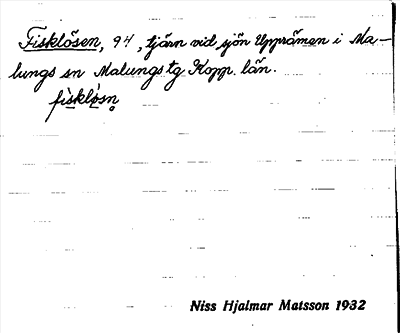 Fisklösen, 94, tjärn vid sjön Upprämen i Ma-
lungs sn Malungs tg Kopp. län.
fìsklö̀sn̥
Niss Hjalmar Matsson 1932